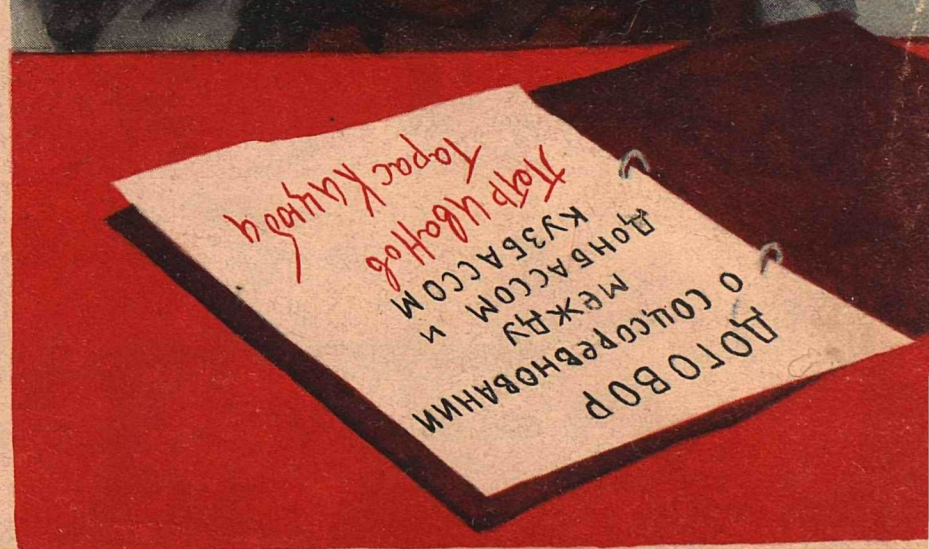 ДОГОВОР
О СОЦСОРЕВНОВАНИИ
МЕЖДУ
ДОНБАССОМ И
КУЗБАССОМ
Петр Иванов
Тарас